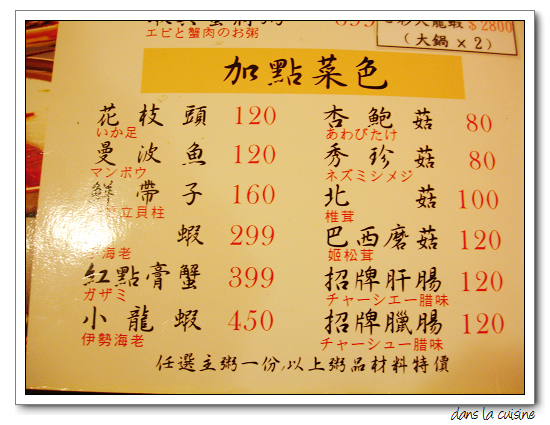 エビと蟹肉のお粥
$2800
(大鍋×2)
加點菜色
花枝頭 120
いか足
曼波魚 120
マンボウ
鮮帶子 160
立貝柱
蝦 299
海老
紅點膏蟹 399
ガザミ
小龍蝦 450
伊勢海老
杏鮑菇 80
あわびたけ
秀珍菇 80
ネズミシメジ
北菇 100
椎茸
巴西磨菇 120
姬松茸
招牌肝腸 120
チャーシエー腊味
招牌臘腸 120
チャーシュー腊味
任選主粥一份,以上粥品材料特價
dans la cuisine